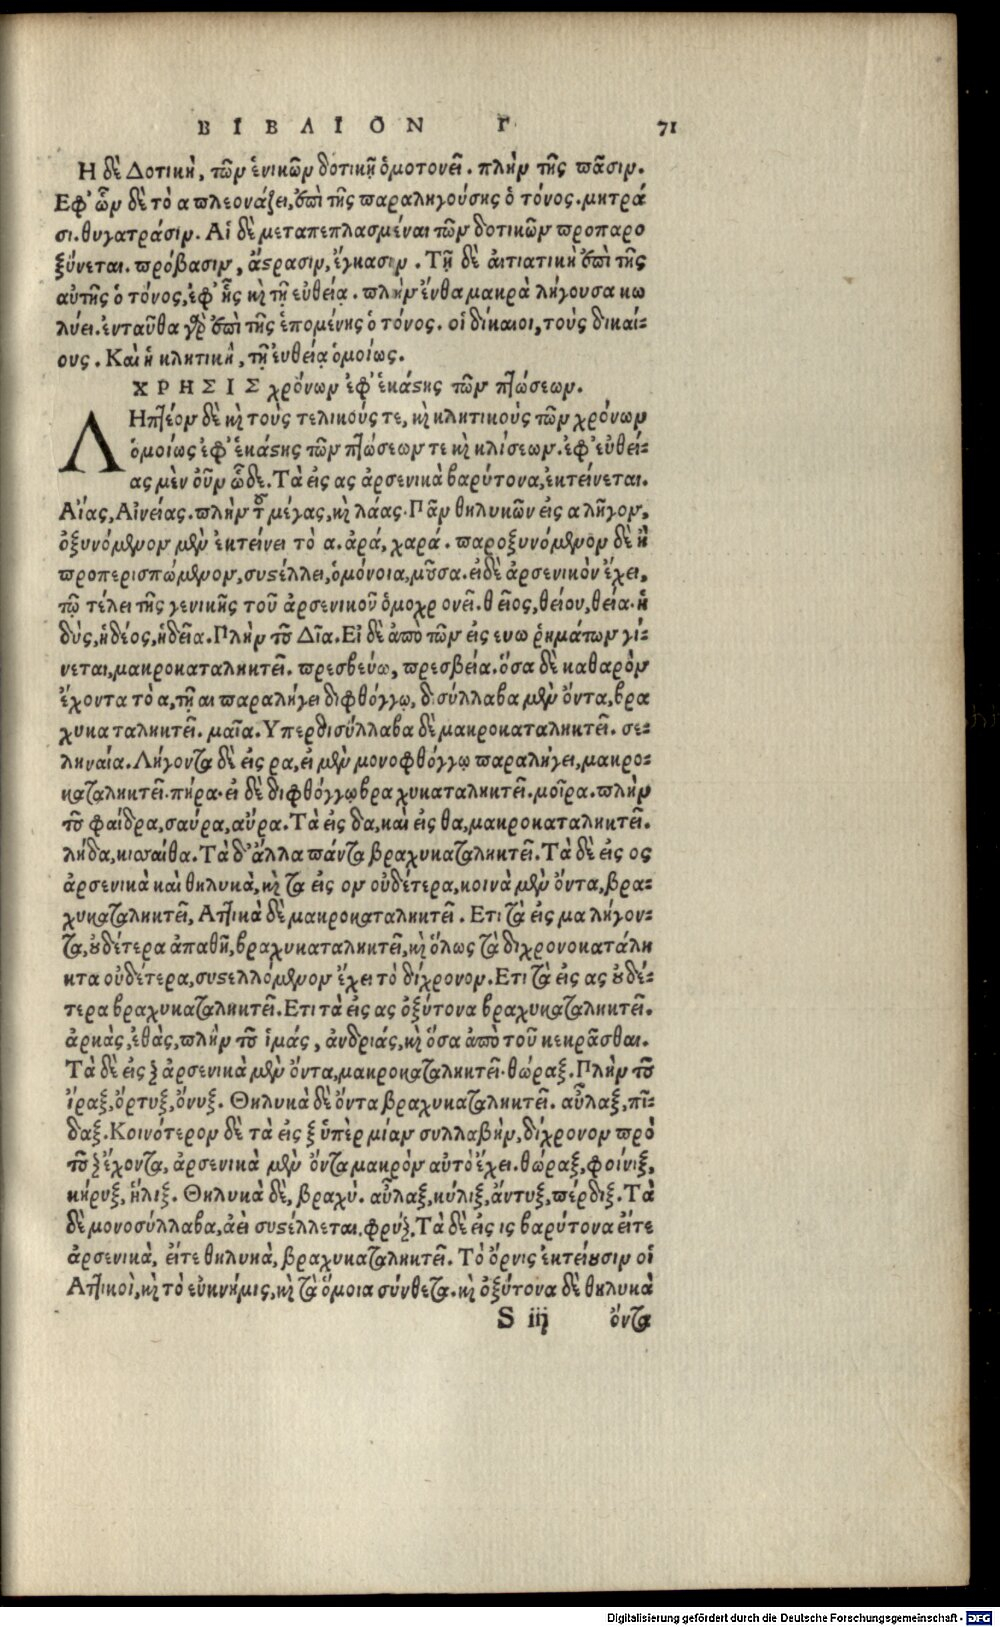 ΒΙΒΛΙΟΝ Γ 71
Η δὲ Δοτικὴ, τῶν ἑνικῶν δοτικῇ ὁμοτονεῖ. πλὴν τῆς πᾶσιν.
Εφ' ὧν δὲ τὸ α πλεονάζει, ἐπὶ τῆς παραληγούσης ὁ τόνος. μητρά
σι. θυγατράσιν. Αἱ δὲ μεταπεπλασμέναι τῶν δοτικῶν προπαρο
ξύνεται. πρόβασιν, ἄστρασιν, ἔγκασιν. Τῇ δὲ αἰτιατικὴ ἐπὶ τῆς
αὐτῆς ὁ τόνος, ἐφ' ἧς κὶ τῇ εὐθεία. πλὴν ἔνθα μακρὰ λήγουσα κω
λύει. ἐνταῦθα γὰρ ἐπὶ τῆς ἑπομένης ὁ τόνος. οἱ δίκαιοι, τοὺς δικαί-
ους. Καὶ ἡ κλητικὴ, τῇ εὐθείᾳ ὁμοίως.
ΧΡΗΣΙΣ χρόνων ἐφ' ἑκάστης τῶν πτώσεων.
ΛΗπτέον δὲ κὶ τοὺς τελικούς τε, κὶ κλητικοὺς τῶν χρόνων
ὁμοίως ἐφ' ἑκάστης τῶν πτώσεων τε κὶ κλίσεων. ἐφ' εὐθεί-
ας μὲν οὖν ὧδε. Τὰ εἰς ας ἀρσενικὰ βαρύτονα, ἐκτείνεται.
Αἴας, Αἰνείας. πλὴν τοῦ μέγας, κὶ λάας. Πᾶν θηλυκῶν εἰς α λῆγον,
ὀξυνόμενον μὲν ἐκτείνει τὸ α. ἀρά, χαρά. παροξυνόμενον δὲ ἢ
προπερισπώμενον, συστέλλει, ὁμόνοια, μοῦσα. εἰ δὲ ἀρσενικὸν ἔχει,
τῷ τέλει τῆς γενικῆς τοῦ ἀρσενικοῦ ὁμοχρονεῖ. θεῖος, θείου, θεία. ἡ
δὺς, ἡδέος, ἡδεῖα. Πλὴν τοῦ Δῖα. Εἰ δὲ ἀπὸ τῶν εἰς ευω ῥημάτων γί-
νεται, μακροκαταληκτεῖ. πρεσβεύω, πρεσβεία. ὅσα δὲ καθαρὸν
ἔχοντα τὸ α, τῇ αι παραλήγει διφθόγγῳ, δισύλλαβα μὲν ὄντα, βρα
χυκαταληκτεῖ. μαῖα. Υπερδισύλλαβα δὲ μακροκαταληκτεῖ. σε-
ληναία. Λήγοντα δὲ εἰς ρα, εἰ μὲν μονοφθόγγῳ παραλήγει, μακρο-
καταληκτεῖ. πήρα. εἰ δὲ διφθόγγῳ βραχυκαταληκτεῖ. μοῖρα. πλὴν
τοῦ φαίδρα, σαύρα, αὔρα. Τὰ εἰς δα, καὶ εἰς θα, μακροκαταληκτεῖ.
λήδα, κισσαίθα. Τὰ δ' ἄλλα πάντα βραχυκαταληκτεῖ. Τὰ δὲ εἰς ος
ἀρσενικὰ καὶ θηλυκὰ, κὶ τὰ εἰς ον οὐδέτερα, κοινὰ μὲν ὄντα, βρα-
χυκαταληκτεῖ, Ατ̓τικὰ δὲ μακροκαταληκτεῖ. Ετι τὰ εἰς μα λήγον-
τα, οὐδέτερα ἀπαθῆ, βραχυκαταληκτεῖ, κὶ ὅλως τὰ διχρονοκατάλη
κτα οὐδέτερα, συστελλόμενον ἔχει τὸ δίχρονον. Ετι τὰ εἰς ας οὐδέ-
τερα βραχυκαταληκτεῖ. Ετι τὰ εἰς ας ὀξύτονα βραχυκαταληκτεῖ.
ἀρκὰς, ἐθὰς, πλὴν τοῦ ἱμάς, ἀνδριάς, κὶ ὅσα ἀπὸ τοῦ κεκρᾶσθαι.
Τὰ δὲ εἰς ξ ἀρσενικὰ μὲν ὄντα, μακροκαταληκτεῖ. θώραξ. Πλὴν τοῦ
ἵραξ, ὄρτυξ, ὄνυξ. Θηλυκὰ δὲ ὄντα βραχυκαταληκτεῖ. αὖλαξ, πῖ-
δαξ. Κοινότερον δὲ τὰ εἰς ξ ὑπὲρ μίαν συλλαβὴν, δίχρονον πρὸ
τοῦ ξ ἔχοντα, ἀρσενικὰ μὲν ὄντα μακρὸν αὐτὸ ἔχει. θώραξ, φοίνιξ,
κήρυξ, ἥλιξ. Θηλυκὰ δὲ, βραχύ. αὖλαξ, κύλιξ, ἄντυξ, πέρδιξ. Τὰ
δὲ μονοσύλλαβα, ἀεὶ συστέλλεται. φρύξ. Τὰ δὲ εἰς ις βαρύτονα εἴτε
ἀρσενικὰ, εἴτε θηλυκὰ, βραχυκαταληκτεῖ. Τὸ ὄρνις ἐκτείουσιν οἱ
Ατ̓τικοὶ, κὶ τὸ εὐκνήμις, κὶ τὰ ὅμοια σύνθετα. κὶ ὀξύτονα δὲ θηλυκὰ
S iij ὄντα
Digitalisierung gefördert durch die Deutsche Forschungsgemeinschaft - DFG